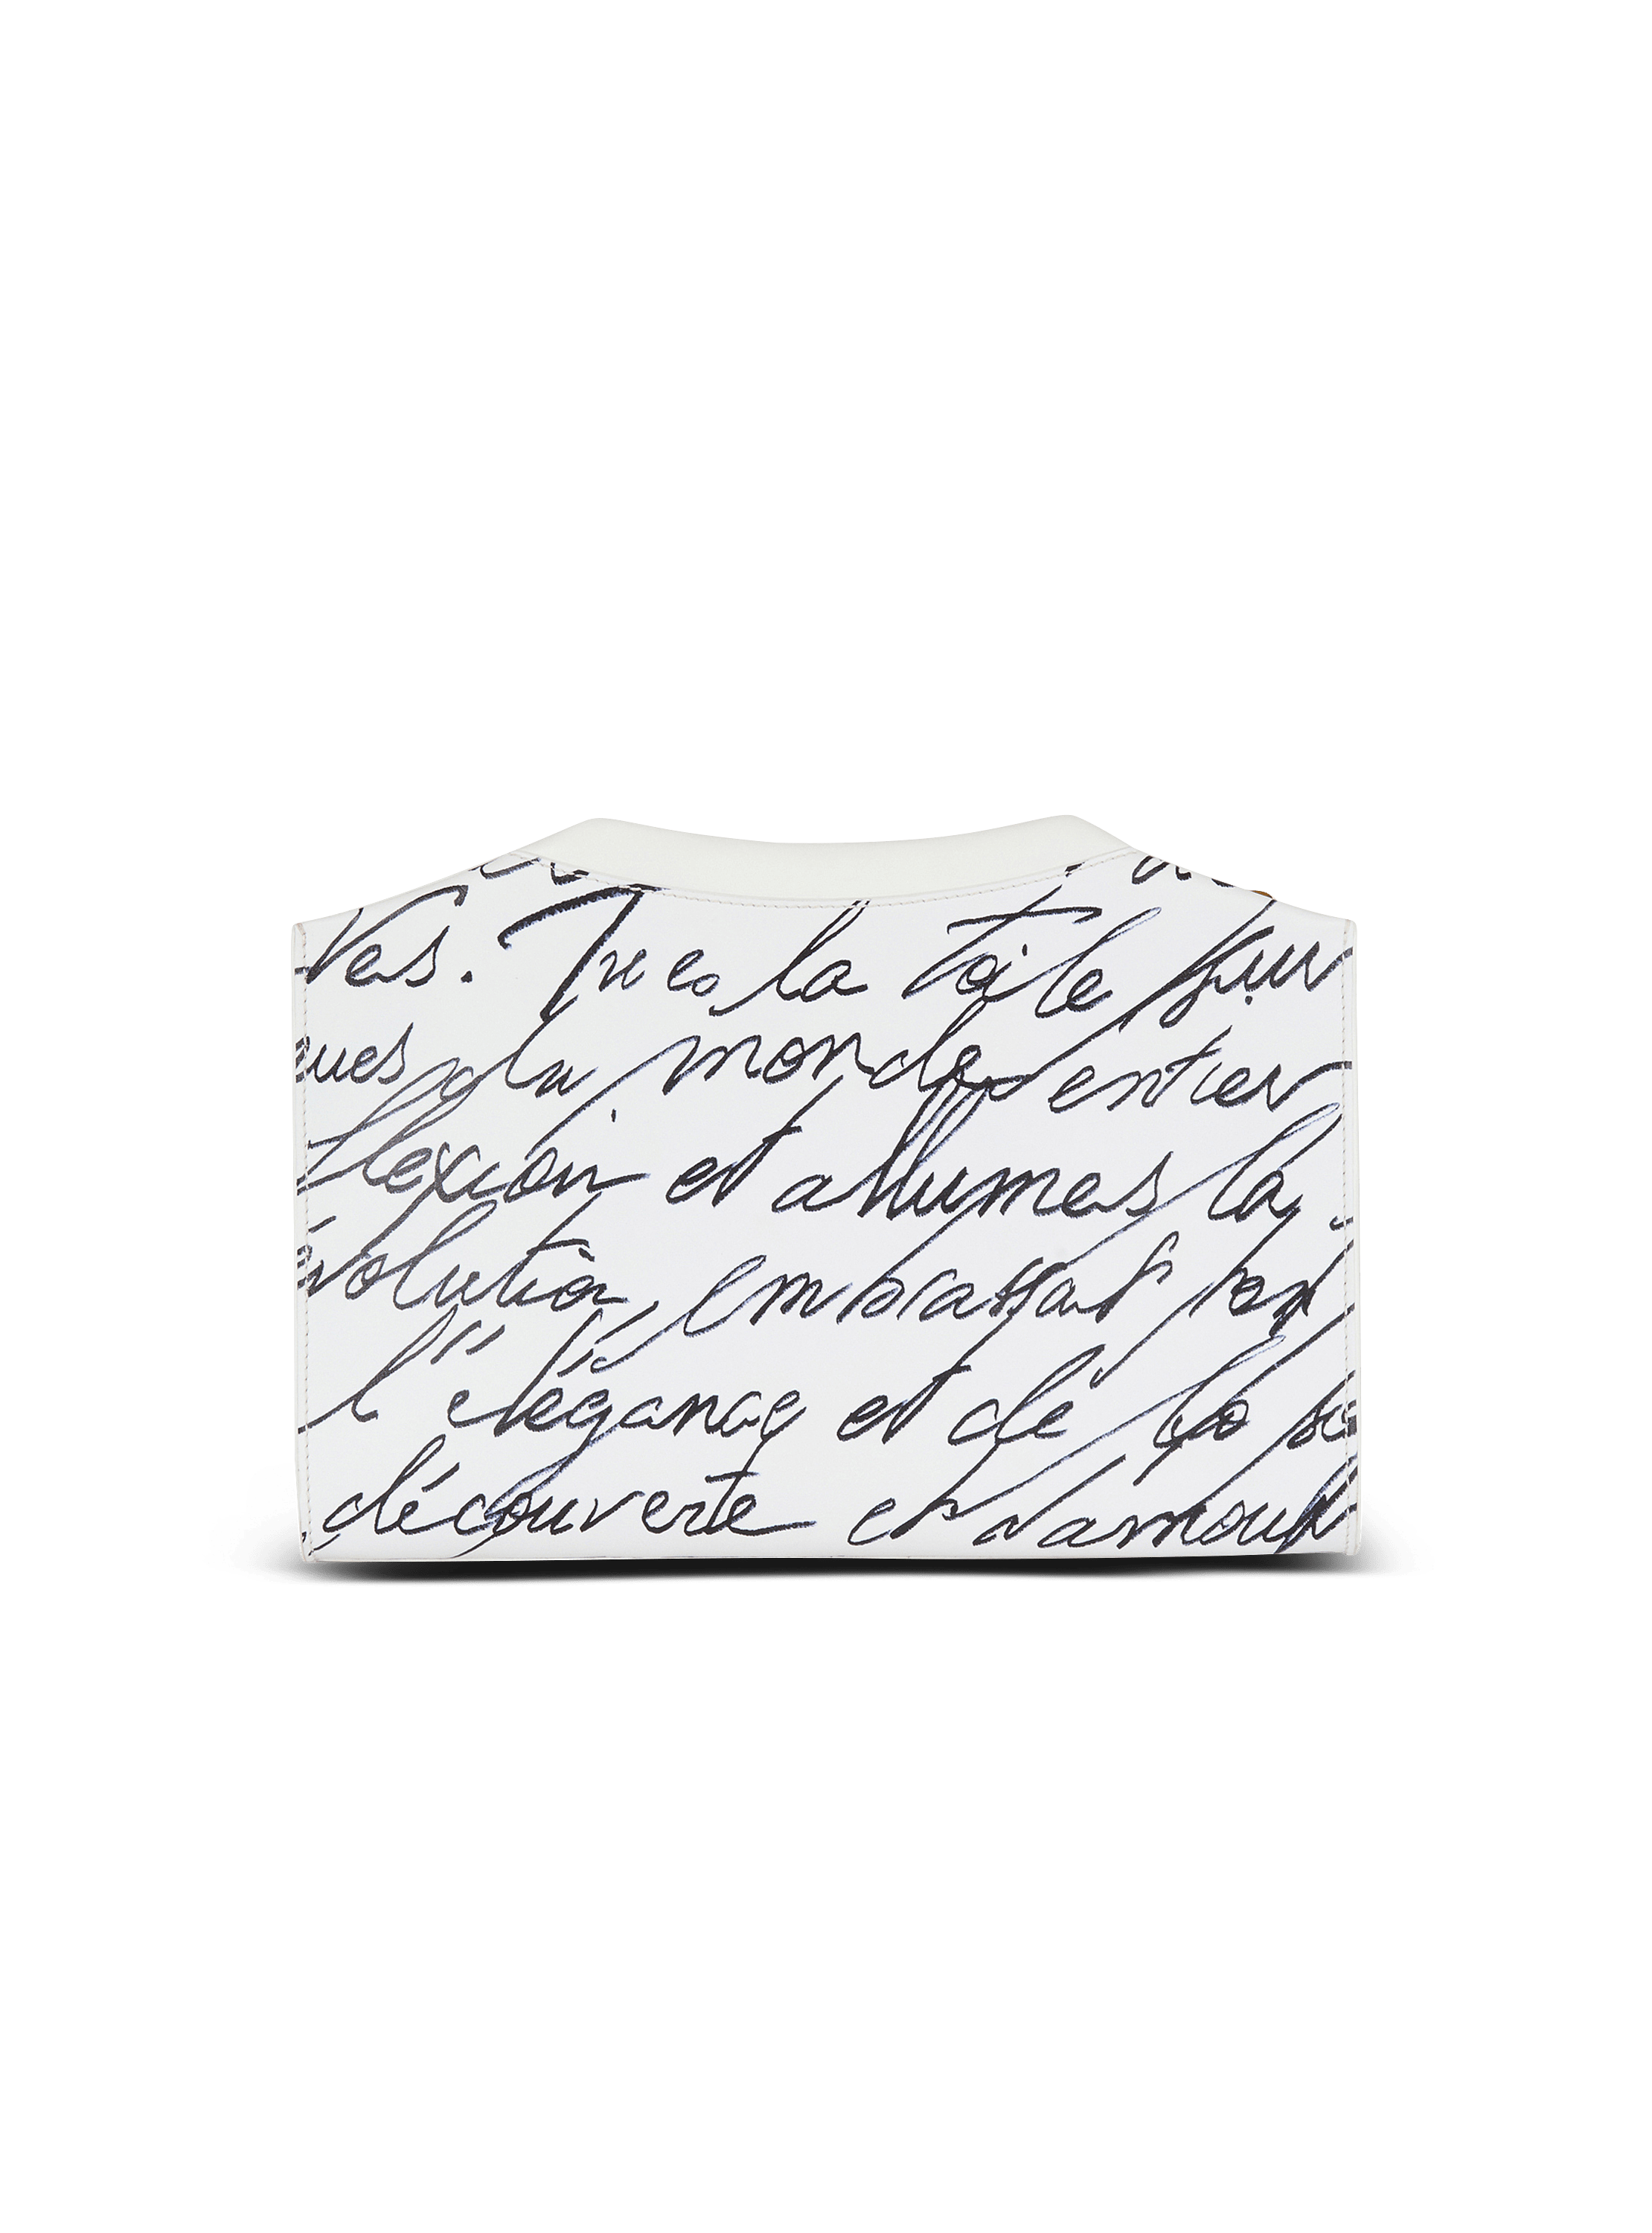 la toile sur
du monde entier
flexion et allumes la
évolution, embrassant ton
l'élégance et de la
découverte et d'amour